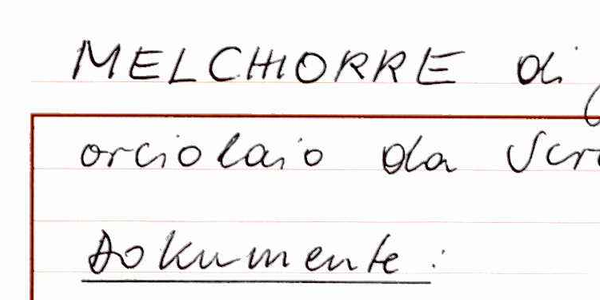 MELCHIORRE di
orciolaio da
Dokumente: